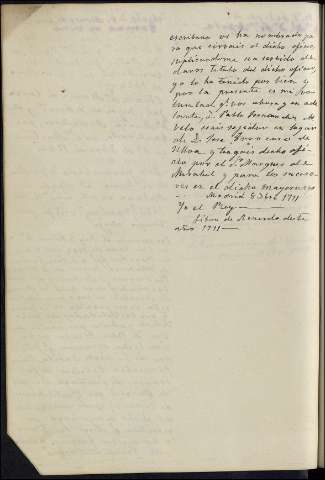 escribano os ha nombrado pa
ra que sirvais el dicho oficio
suplicandome sea servido de
daros titulo del dicho oficio,
yo lo ha tenido por bien y
por la presente es mi
voluntad qe. vos ahora y en ade
lante, D. Pablo
seais regidor en lugar
de D. Jose de
Ulloa y tengais dicho ofi
cio por el Sr. Marques de
Mirabel y para los suceso
res en el dicho mayorazgo
Madrid 8 1711
Yo el Rey
Libro de Acuerdo deste
año 1711